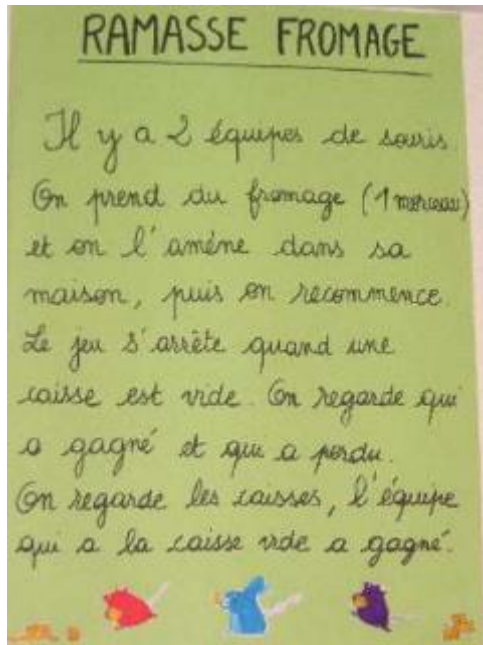 RAMASSE FROMAGE
Il y a 2 équipes de souris.
On prend du fromage (1 morceau)
et on l'amène dans sa
maison, puis on recommence.
Le jeu s'arrête quand une
caisse est vide. On regarde qui
a gagné et qui a perdu.
On regarde les caisses, l'équipe
qui a la caisse vide a gagné.